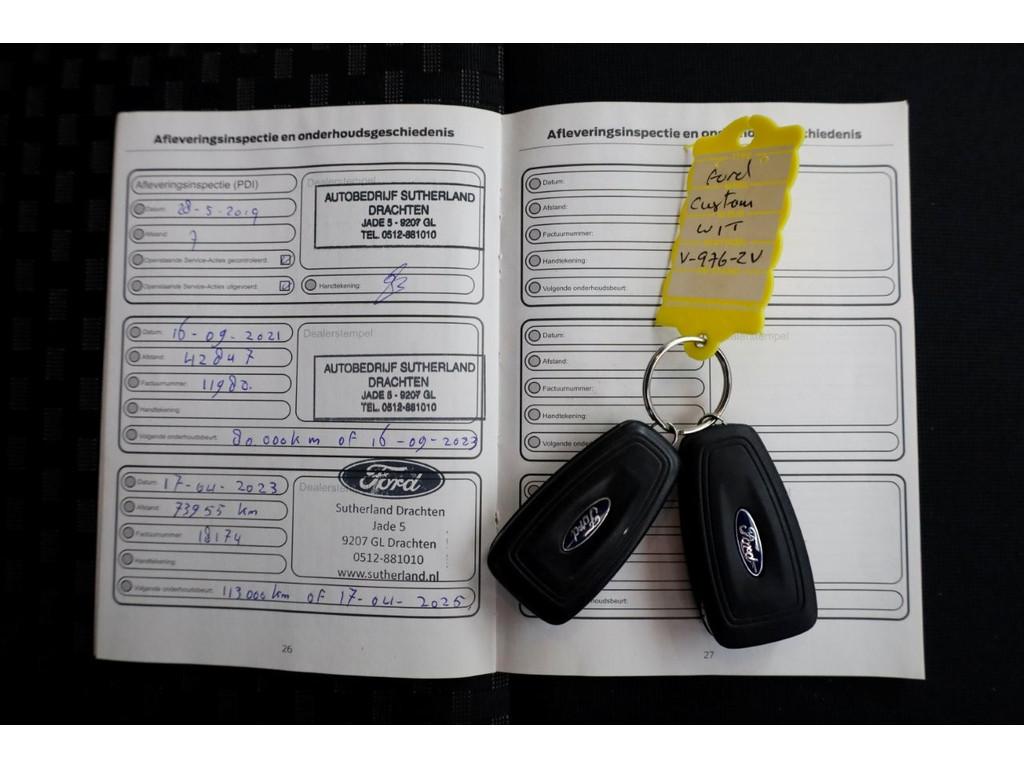 Afleveringsinspectie en onderhoudsgeschiedenis
Afleveringsinspectie (PDI)
Datum: 28-5-2019
Afstand: 7
Openstaande Service-Acties gecontroleerd:
Openstaande Service-Acties uitgevoerd:
Dealerstempel
AUTOBEDRIJF SUTHERLAND
DRACHTEN
JADE 5 - 9207 GL
TEL. 0512-881010
Handtekening:
Datum: 16-09-2021
Afstand: 42847
Factuurnummer: 11980.
Handtekening:
Dealerstempel
AUTOBEDRIJF SUTHERLAND
DRACHTEN
JADE 5 - 9207 GL
TEL. 0512-881010
Volgende onderhoudsbeurt: 80.000km of 16-09-2023
Datum: 17-04-2023
Afstand: 73955 km
Factuurnummer: 18174
Handtekening:
Dealerstempel
Ford
Sutherland Drachten
Jade 5
9207 GL Drachten
0512-881010
www.sutherland.nl
Volgende onderhoudsbeurt: 113000km of 17-04-2025
26
Afleveringsinspectie en onderhoudsgeschiedenis
Datum:
Afstand:
Factuurnummer:
Handtekening:
Volgende onderhoudsbeurt:
Datum:
Afstand:
Factuurnummer:
Handtekening:
Volgende onde
Dealerstempel
houdsbeurt:
27
Ford
Custom
WIT
V-976-ZV
Ford
Ford